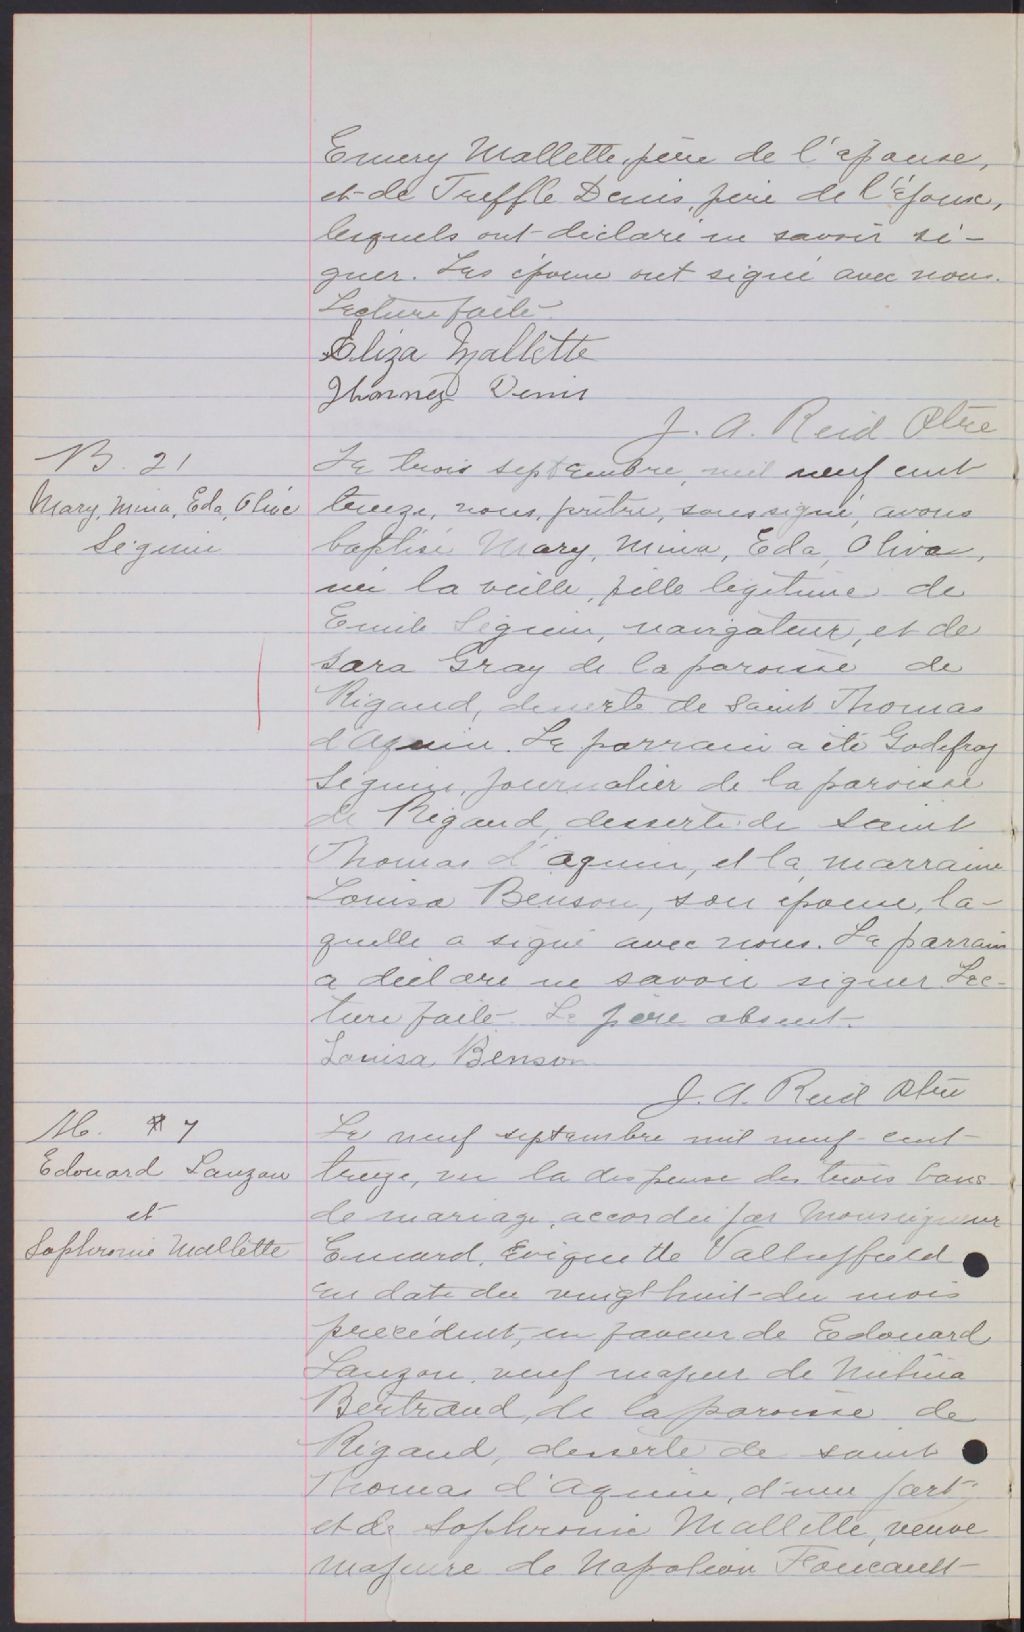 Emery Mallette, père de l'épouse,
et de Treffle Denis, père de l'époux,
lesquels ont déclaré ne savoir si-
gner. Les époux ont signé avec nous.
Lecture faite.
Eliza Mallette
Denis
J. A. Reid Ptre
B. 21
Mary, Mina, Eda, Olive
Séguin
Le trois septembre, mil neuf cent
treize, nous, prêtre, soussigné, avons
baptisé Mary, Mina, Eda, Oliva,
née la veille, fille légitime de
Emile Séguin, navigateur, et de
Sara Gray de la paroisse de
Rigaud, desserte de Saint Thomas
d'Aquin. Le parrain a été Godefroy
Séguin, journalier de la paroisse
de Rigaud, desserte de Saint
Thomas d'Aquin, et la marraine
Louisa Benson, son épouse, la-
quelle a signé avec nous. Le parrain
a déclaré ne savoir signer Lec-
ture faite. Le père absent.
Louisa Benson
J. A. Reid Ptre
M. 7
Edouard Lauzon
et
Sophronie Mallette
Le neuf septembre mil neuf-cent
treize, vu la dispense des trois bans
de mariage, accordée par Monseigneur
Emard, Evêque de Valleyfield
en date du vingt huit du mois
précédent, en faveur de Edouard
Lauzon, veuf majeur de
Bertrand, de la paroisse de
Rigaud, desserte de saint
Thomas d'Aquin, d'une part;
et de Sophronie Mallette, veuve
majeure de Napoléon Foucault